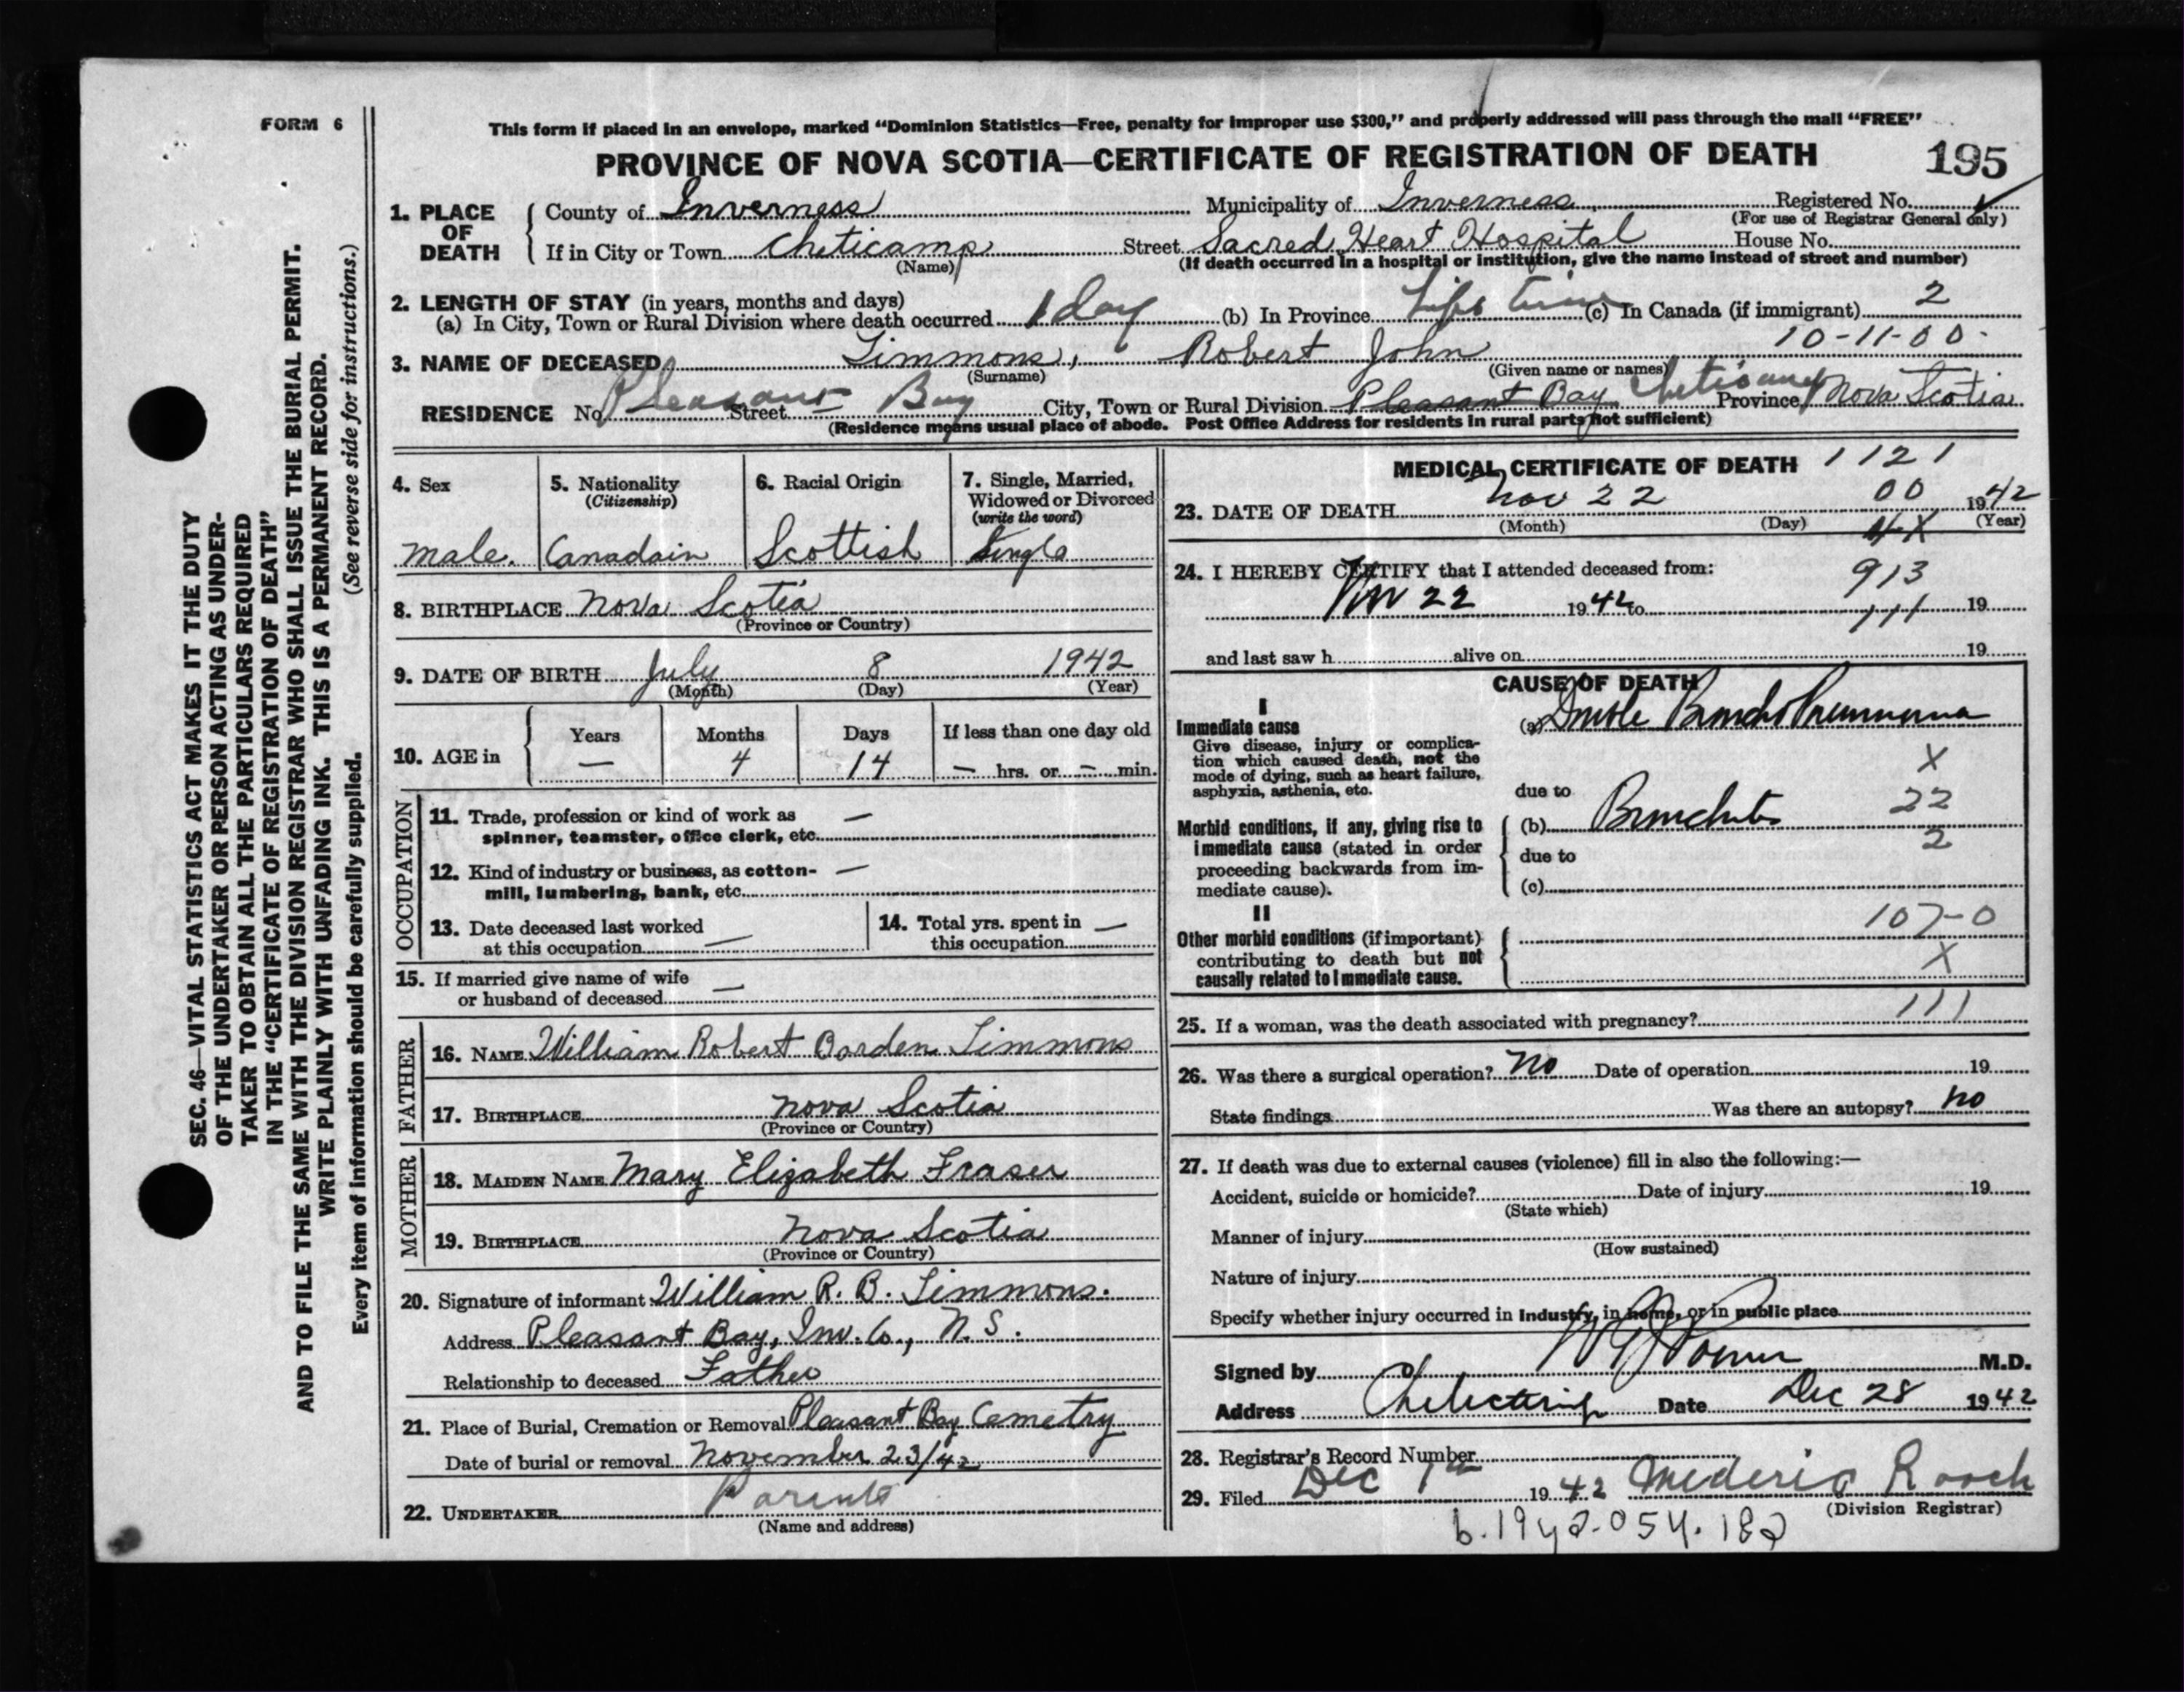 FORM 6
This form if placed in an envelope, marked "Dominion Statistics—Free, penalty for improper use $300," and properly addressed will pass through the mail "FREE"
PROVINCE OF NOVA SCOTIA—CERTIFICATE OF REGISTRATION OF DEATH 195
SEC. 46—VITAL STATISTICS ACT MAKES IT THE DUTY
OF THE UNDERTAKER OR PERSON ACTING AS UNDER-
TAKER TO OBTAIN ALL THE PARTICULARS REQUIRED
IN THE "CERTIFICATE OF REGISTRATION OF DEATH"
AND TO FILE THE SAME WITH THE DIVISION REGISTRAR WHO SHALL ISSUE THE BURIAL PERMIT.
WRITE PLAINLY WITH UNFADING INK. THIS IS A PERMANENT RECORD.
Every item of information should be carefully supplied. (See reverse side for instructions.)
1. PLACE OF DEATH County of Inverness Municipality of Inverness Registered No.
(For use of Registrar General only)
If in City or Town Cheticamp Street Sacred Heart Hospital House No.
(Name) (If death occurred in a hospital or institution, give the name instead of street and number)
2. LENGTH OF STAY (in years, months and days)
(a) In City, Town or Rural Division where death occurred 1 day (b) In Province Life time (c) In Canada (if immigrant) 2
10-11-00
3. NAME OF DECEASED Timmons, Robert John
(Surname) (Given name or names)
RESIDENCE No. Pleasant Street Bay City, Town or Rural Division Pleasant Bay Cheticamp Province Nova Scotia
(Residence means usual place of abode. Post Office Address for residents in rural parts not sufficient)
4. Sex 5. Nationality (Citizenship) 6. Racial Origin 7. Single, Married, Widowed or Divorced (write the word)
Male. Canadain Scottish Single
8. BIRTHPLACE Nova Scotia
(Province or Country)
9. DATE OF BIRTH July 8 1942
(Month) (Day) (Year)
10. AGE in Years Months Days If less than one day old
— 4 14 — hrs. or — min.
OCCUPATION
11. Trade, profession or kind of work as —
spinner, teamster, office clerk, etc.
12. Kind of industry or business, as cotton- —
mill, lumbering, bank, etc.
13. Date deceased last worked 14. Total yrs. spent in —
at this occupation — this occupation
15. If married give name of wife —
or husband of deceased
FATHER
16. NAME William Robert Borden Timmons
17. BIRTHPLACE Nova Scotia
(Province or Country)
MOTHER
18. MAIDEN NAME Mary Elizabeth Fraser
19. BIRTHPLACE Nova Scotia
(Province or Country)
20. Signature of informant William R. B. Timmons.
Address Pleasant Bay, Inv. Co., N.S.
Relationship to deceased Father
21. Place of Burial, Cremation or Removal Pleasant Bay Cemetry
Date of burial or removal November 23/42
22. UNDERTAKER Parents
(Name and address)
MEDICAL CERTIFICATE OF DEATH 1121
23. DATE OF DEATH Nov 22 00 1942
(Month) (Day) (Year)
24. I HEREBY CERTIFY that I attended deceased from: 913
Nov 22 1942 to 111 19
and last saw h alive on 19
CAUSE OF DEATH
I
Immediate cause (a) Double Broncho Pneumonia
Give disease, injury or complica-
tion which caused death, not the X
mode of dying, such as heart failure,
asphyxia, asthenia, etc. due to
22
Morbid conditions, if any, giving rise to (b) Bronchitis
immediate cause (stated in order 2
proceeding backwards from im- due to
mediate cause). (c)
II
107-0
Other morbid conditions (if important)
contributing to death but not X
causally related to immediate cause.
25. If a woman, was the death associated with pregnancy? 111
26. Was there a surgical operation? No Date of operation 19
State findings Was there an autopsy? no
27. If death was due to external causes (violence) fill in also the following:—
Accident, suicide or homicide? Date of injury 19
(State which)
Manner of injury
(How sustained)
Nature of injury
Specify whether injury occurred in Industry, in home, or in public place
Signed by M.D.
Address Date Dec 28 1942
28. Registrar's Record Number
29. Filed Dec 1st 1942 Mederic Roach
(Division Registrar)
b.1942-054.182